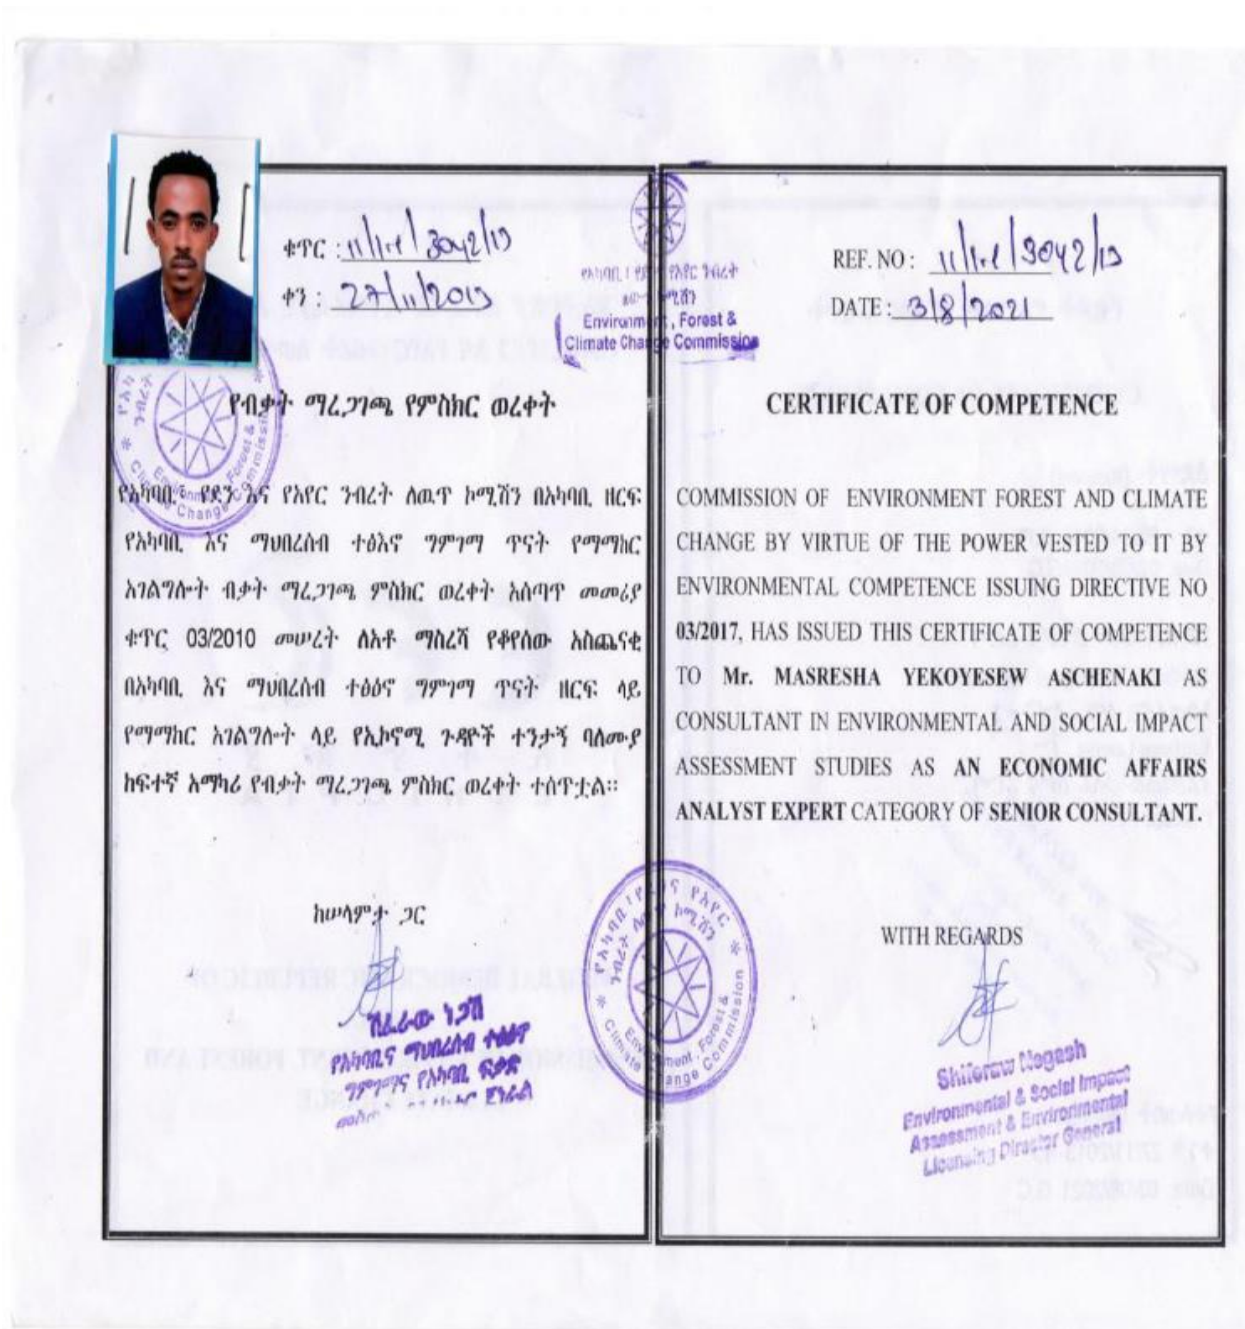 ቁጥር : 11/1.1/3042/13
ቀን : 27/11/2013
የብቃት ማረጋገጫ የምስክር ወረቀት
የአካባቢ፣ የደን እና የአየር ንብረት ለዉጥ ኮሚሽን በአካባቢ ዘርፍ
የአካባቢ እና ማህበረሰብ ተፅእኖ ግምገማ ጥናት የማማከር
አገልግሎት ብቃት ማረጋገጫ ምስክር ወረቀት አሰጣጥ መመሪያ
ቁጥር 03/2010 መሠረት ለአቶ ማስረሻ የቆየሰው አስጨናቂ
በአካባቢ እና ማህበረሰብ ተፅዕኖ ግምገማ ጥናት ዘርፍ ላይ
የማማከር አገልግሎት ላይ የኢኮኖሚ ጉዳዮች ተንታኝ ባለሙያ
ከፍተኛ አማካሪ የብቃት ማረጋገጫ ምስክር ወረቀት ተሰጥቷል።
ከሠላምታ ጋር
ሽፈራው ነጋሽ
የአካባቢና ማህበረሰብ ተፅዕኖ
ግምገማና የአካባቢ ፍቃድ
Environment, Forest &
Climate Change Commission
REF. NO : 11/1.1/3042/13
DATE : 3/8/2021
CERTIFICATE OF COMPETENCE
COMMISSION OF ENVIRONMENT FOREST AND CLIMATE
CHANGE BY VIRTUE OF THE POWER VESTED TO IT BY
ENVIRONMENTAL COMPETENCE ISSUING DIRECTIVE NO
03/2017, HAS ISSUED THIS CERTIFICATE OF COMPETENCE
TO Mr. MASRESHA YEKOYESEW ASCHENAKI AS
CONSULTANT IN ENVIRONMENTAL AND SOCIAL IMPACT
ASSESSMENT STUDIES AS AN ECONOMIC AFFAIRS
ANALYST EXPERT CATEGORY OF SENIOR CONSULTANT.
WITH REGARDS
Shiferaw Negash
Environmental & Social Impact
Assessment & Environmental
Licensing Director General